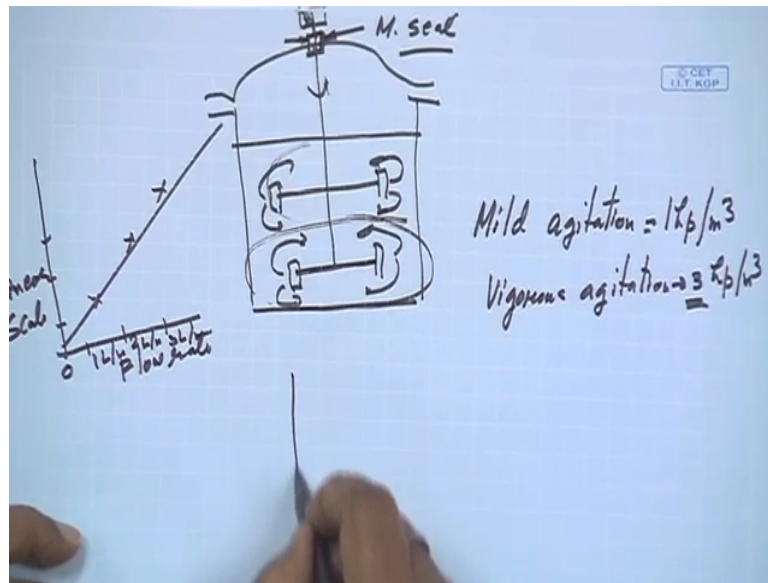 M. seal
© CET
I.I.T. KGP
Mild agitation = 1hp/m³
Vigorous agitation → 3 hp/m³
Scale
0
1L/m 2L/m 3L/m
Flow rate